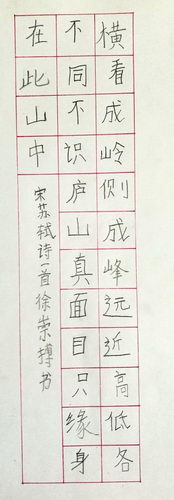 横看成岭侧成峰远近高低各
不同不识庐山真面目只缘身
在此山中
宋苏轼诗一首徐崇搏书